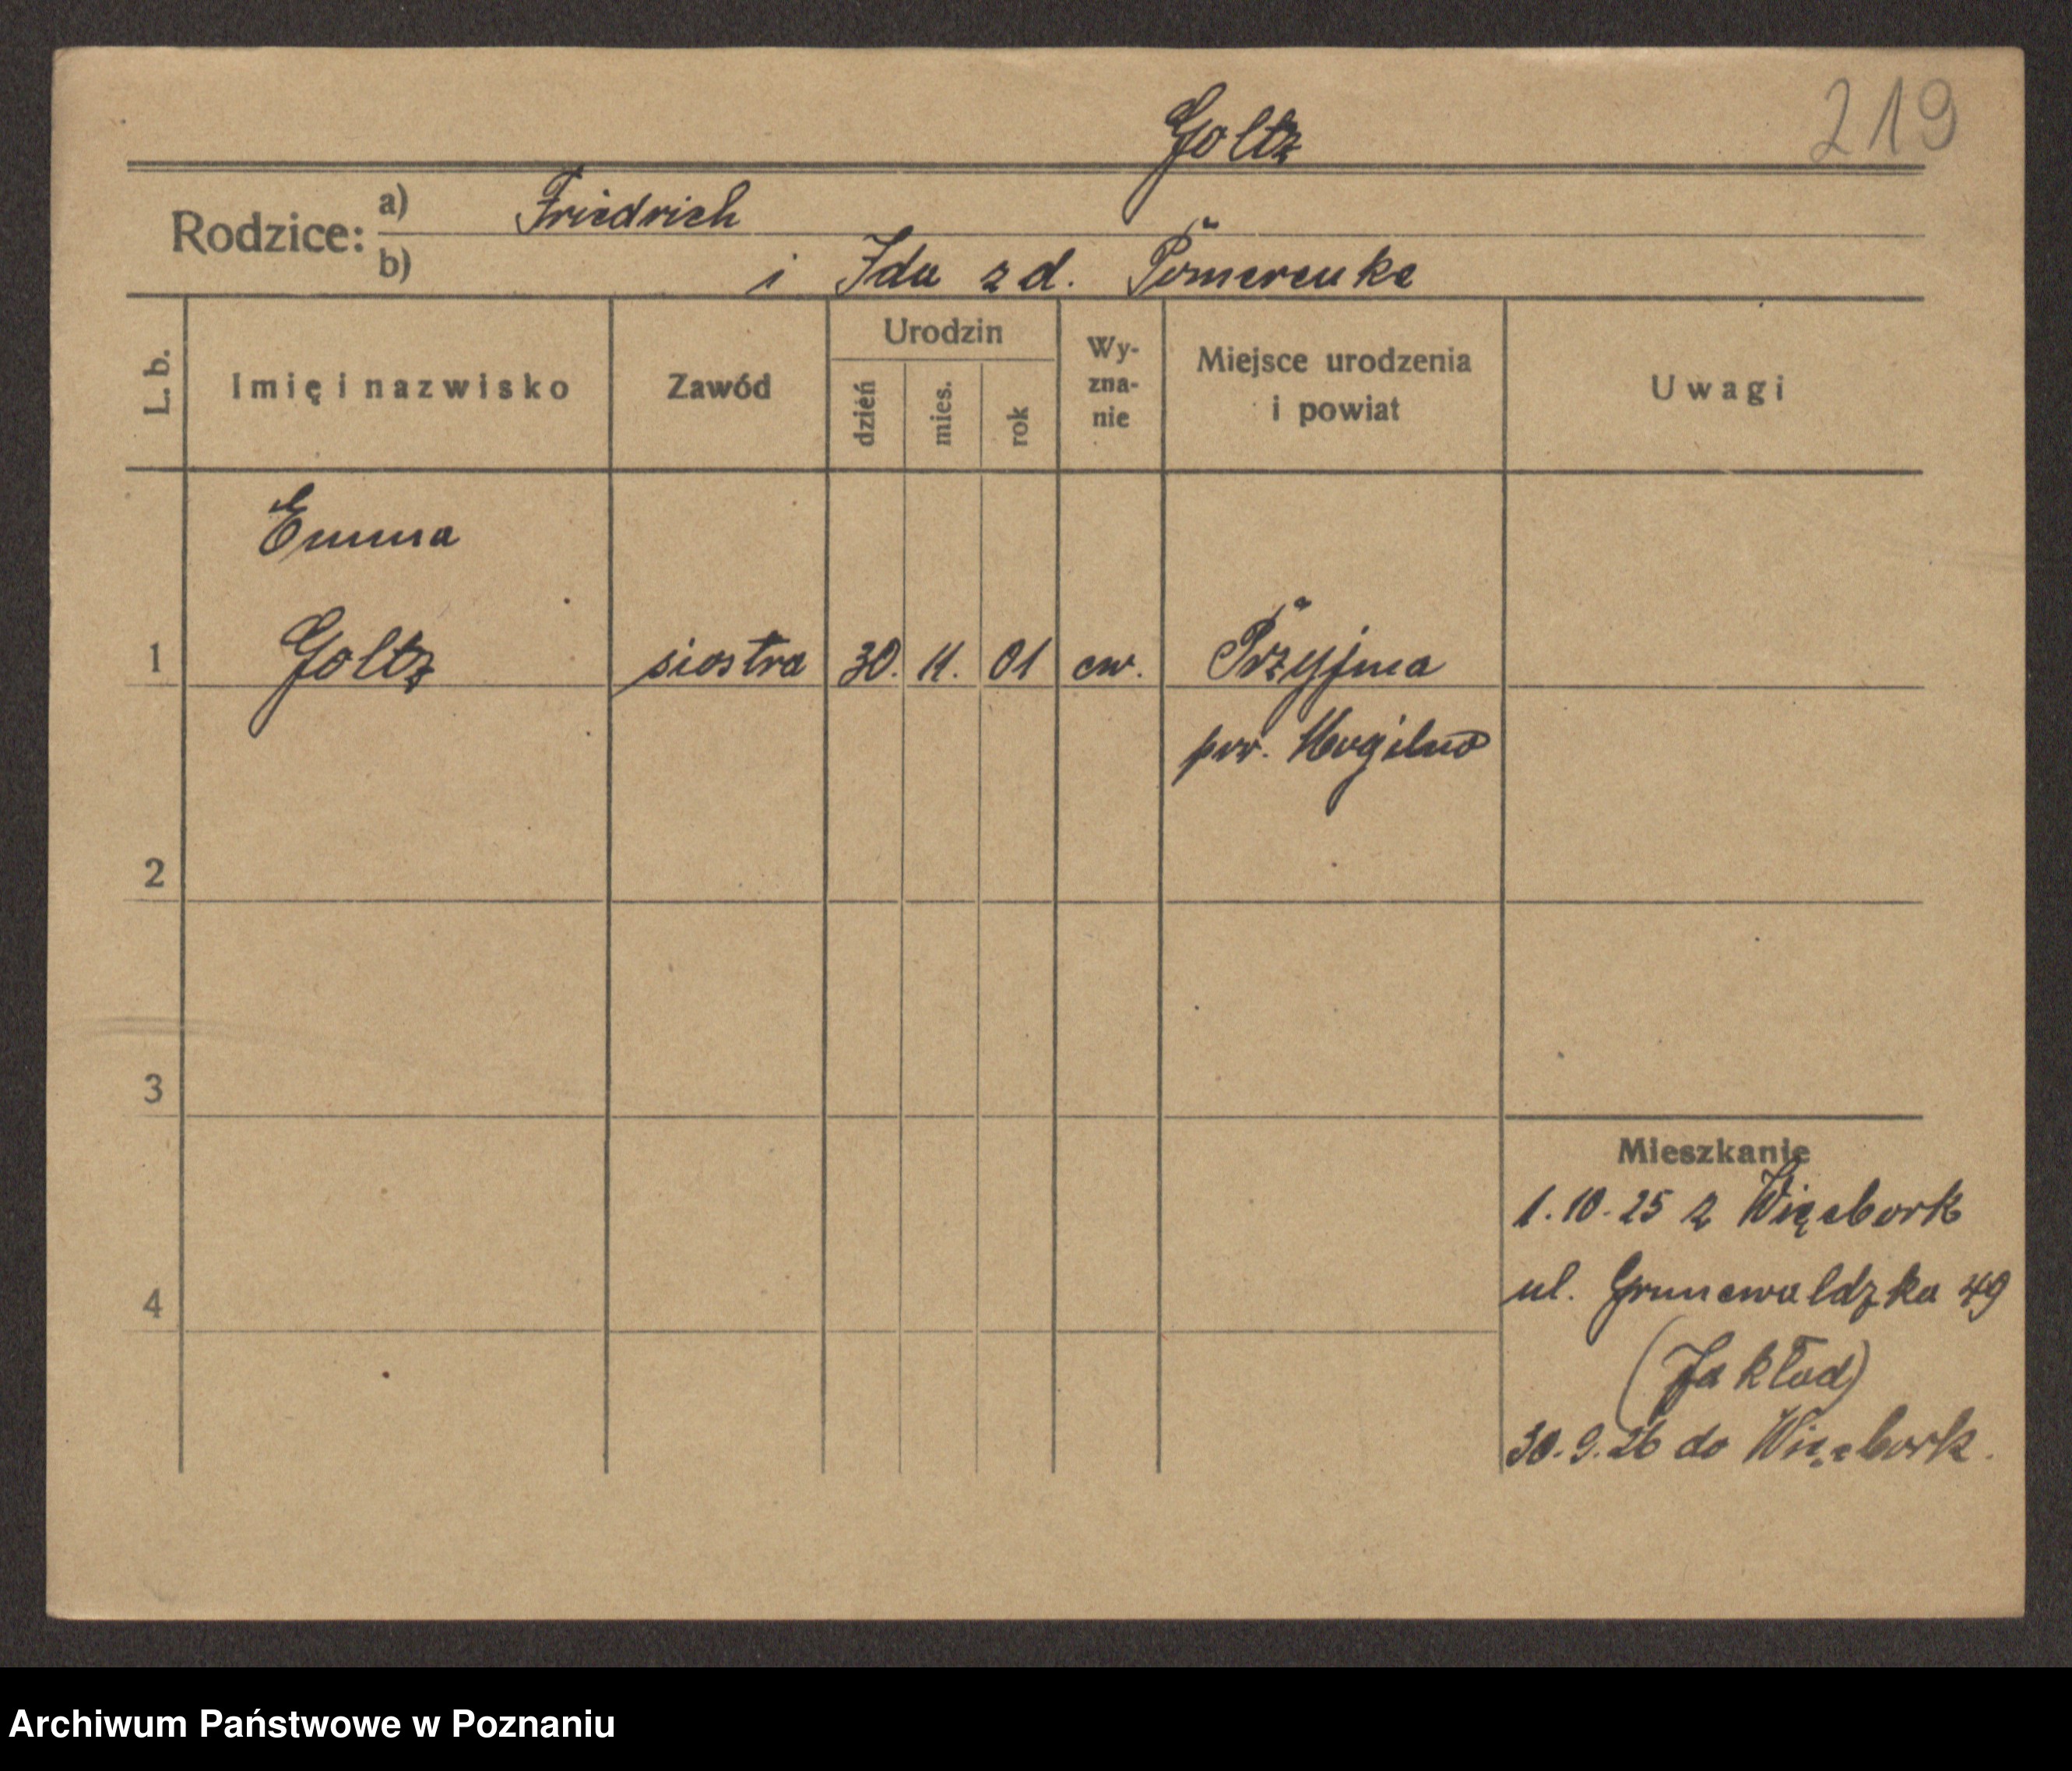 219
Goltz
Rodzice: a) Friedrich
b) i Ida z d. Pomerenke
L. b. Imię i nazwisko Zawód Urodzin dzień mies. rok Wy-zna-nie Miejsce urodzenia i powiat Uwagi
Emma
1 Goltz siostra 30. 11. 01 ew. Przyjma
pow. Mogilno
2
3
Mieszkanie
1.10.25 z Więcbork
ul. Grunewaldzka 49
4
(Zakład)
30.9.26 do Więcbork.
Archiwum Państwowe w Poznaniu